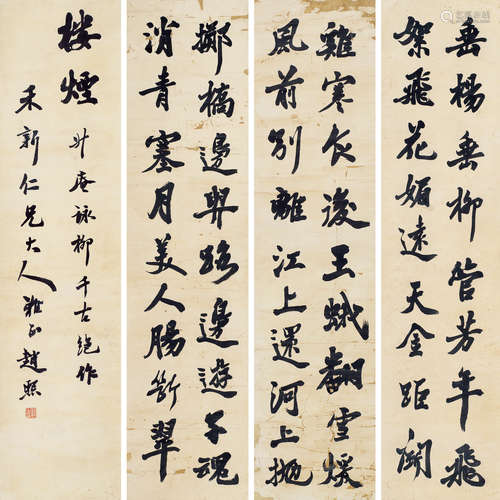 垂楊垂柳管芳年飛
絮飛花媚遠天金距鬥
雞寒食後玉蛾翻雪煖
風前別離江上還河上拋
擲橋邊與路邊遊子魂
消青塞月美人腸斷翠
樓煙
升庵詠柳千古絕作
禾新仁兄大人雅正趙熙